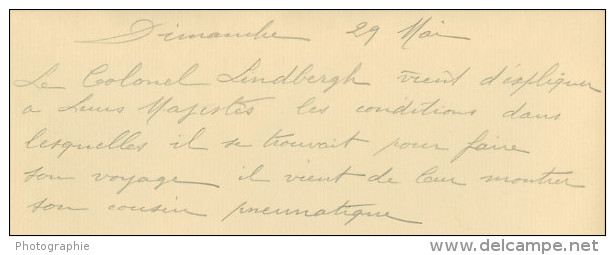 Dimanche 29 Mai
Le Colonel Lindbergh vient d'expliquer
a Leurs Majestés les conditions dans
lesquelles il se trouvait pour faire
son voyage il vient de leur montrer
son cousin pneumatique
Photographie
www.delcampe.net